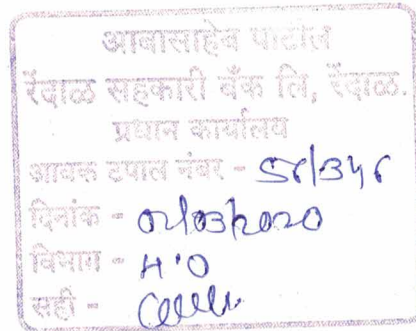 आबासाहेब पाटील
रेंदाळ सहकारी बँक लि, रेंदाळ.
प्रधान कार्यालय
आवक टपाल नंबर -
दिनांक - 02/03/2020
विभाग - H.O
सही -